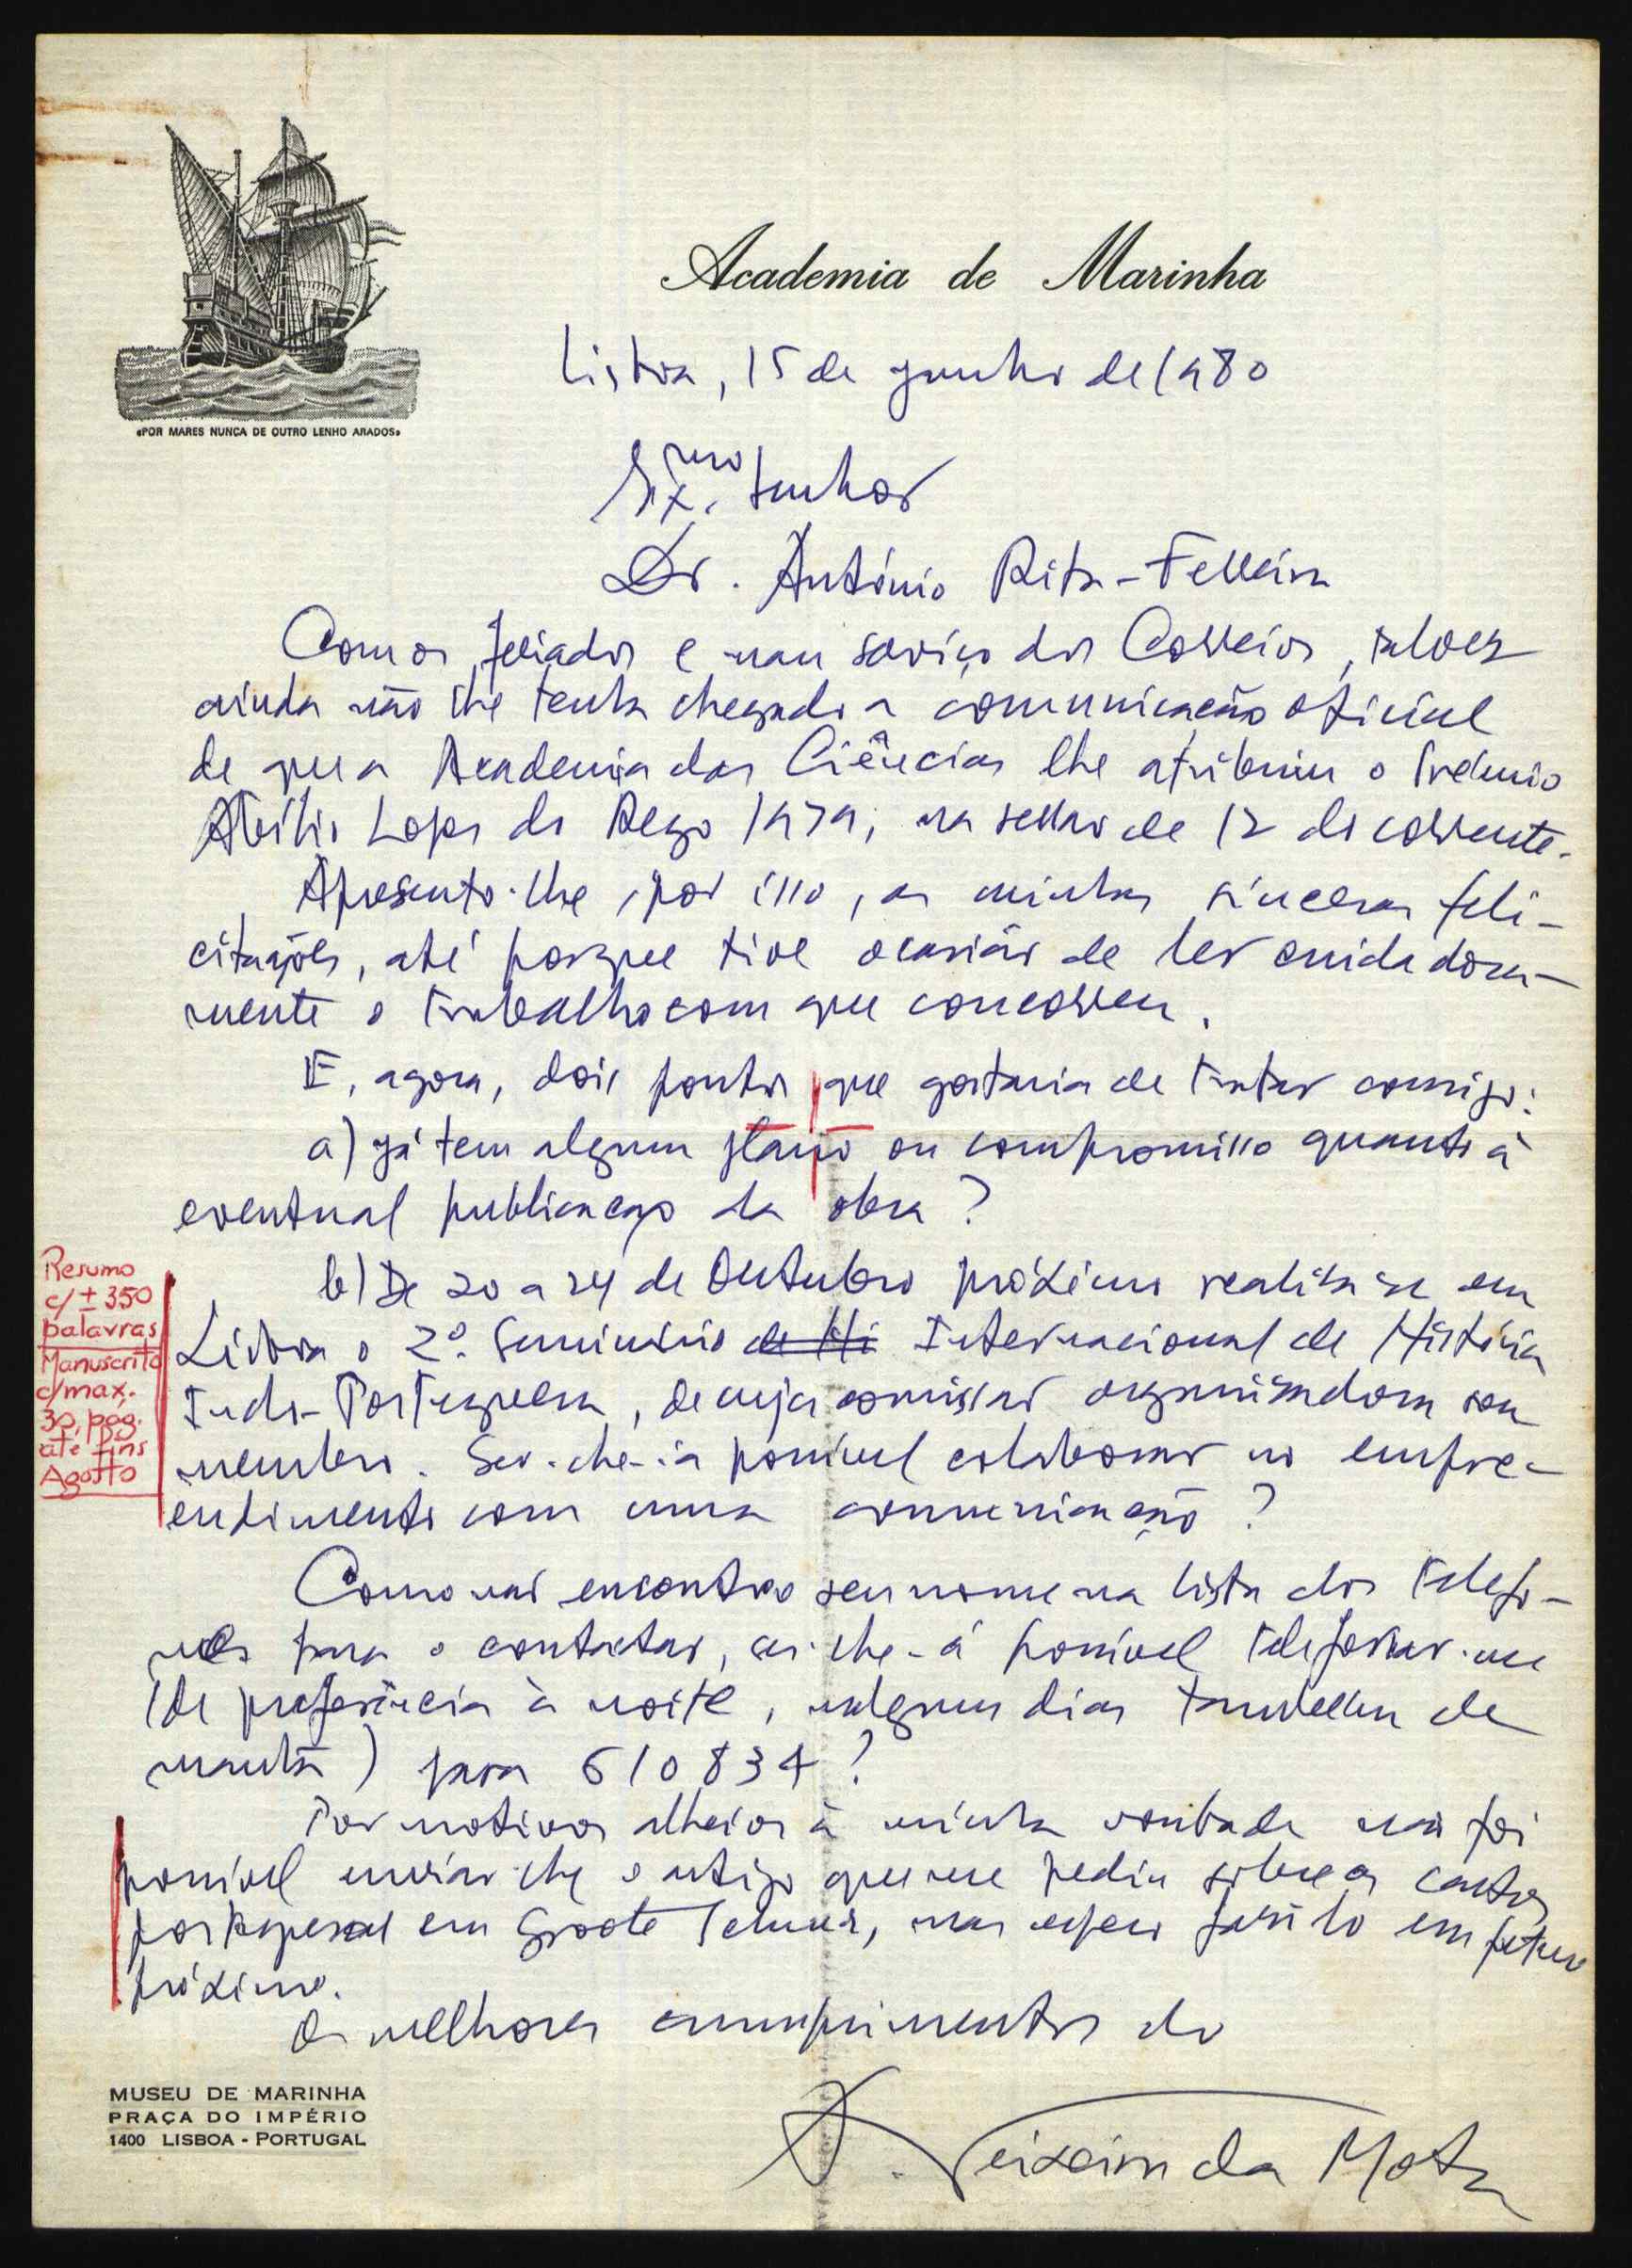 «POR MARES NUNCA DE OUTRO LENHO ARADOS»
Academia de Marinha
Lisboa, 15 de junho de 1980
Ex.mo Senhor
Dr. António Rita-Ferreira
Com os feriados e mau serviço dos Correios, talvez
ainda não lhe tenha chegado a comunicação oficial
de que a Academia das Ciências lhe atribuiu o Prémio
Abílio Lopes do Rego 1979, na sessão de 12 do corrente.
Apresento-lhe, por isso, as minhas sinceras feli-
citações, até porque tive ocasião de ler cuidadosa-
mente o trabalho com que concorreu.
E, agora, dois pontos que gostaria de tratar consigo:
a) já tem algum plano ou compromisso quanto à
eventual publicação da obra?
b) De 20 a 24 de Outubro próximo realiza-se em
Lisboa o 2º. Seminário de Hi Internacional de História
Indo-Portuguesa, de cuja comissão organizadora sou
membro. Ser-lhe-ia possível colaborar no empre-
endimento com uma comunicação?
Resumo
c/ ± 350
palavras
Manuscrito
c/max.
30 pág.
até fins
Agosto
Como não encontro seu nome na lista dos telefo-
nes para o contactar, ser-lhe-á possível telefonar-me
(de preferência à noite, nalguns dias também de
manhã) para 610834?
Por motivos alheios à minha vontade não foi
possível enviar-lhe o artigo que me pediu sobre as cartas
portuguesas em Groote Schuur, mas espero fazê-lo em futuro
próximo.
Os melhores cumprimentos do
A. Teixeira da Mota
MUSEU DE MARINHA
PRAÇA DO IMPÉRIO
1400 LISBOA - PORTUGAL